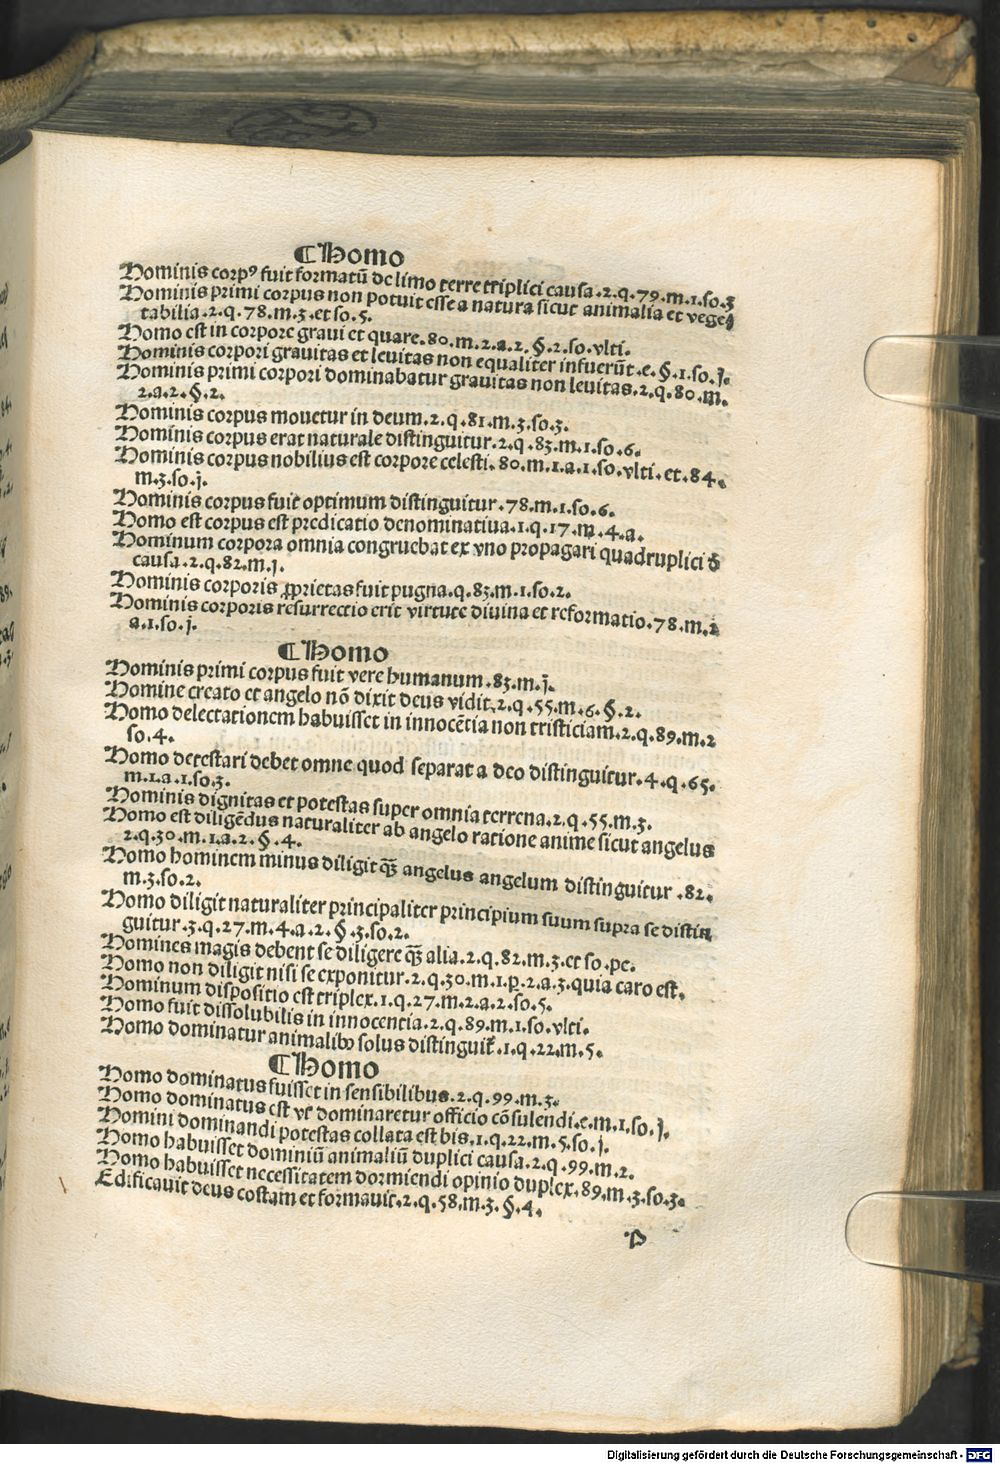 ¶Homo
Hominis corpꝰ fuit formatū de limo terre triplici causa.2.q.79.m.1.so.3
Hominis primi corpus non potuit esse a natura sicut animalia et vege/
tabilia.2.q.78.m.3.et so.5.
Homo est in corpore graui et quare.80.m.2.a.2.§.2.so.vlti.
Hominis corpori grauitas et leuitas non equaliter infuerūt.e.§.1.so.j.
Hominis primi corpori dominabatur grauitas non leuitas.2.q.80.m.
2.a.2.§.2.
Hominis corpus mouetur in deum.2.q.81.m.3.so.3.
Hominis corpus erat naturale distinguitur.2.q.83.m.1.so.6.
Hominis corpus nobilius est corpore celesti.80.m.1.a.1.so.vlti.et.84.
m.3.so.j.
Hominis corpus fuit optimum distinguitur.78.m.1.so.6.
Homo est corpus est predicatio denominatiua.1.q.17.m.4.a.
Hominum corpora omnia congruebat ex vno propagari quadruplici d̄
causa.2.q.82.m.j.
Hominis corporis ꝓprietas fuit pugna.q.83.m.1.so.2.
Hominis corporis resurrectio erit virtute diuina et reformatio.78.m.2
a.1.so.j.
¶Homo
Hominis primi corpus fuit vere humanum.83.m.j.
Homine creato et angelo nō dixit deus vidit.2.q.55.m.6.§.2.
Homo delectationem habuisset in innocētia non tristiciam.2.q.89.m.2
so.4.
Homo detestari debet omne quod separat a deo distinguitur.4.q.65.
m.1.a.1.so.3.
Hominis dignitas et potestas super omnia terrena.2.q.55.m.3.
Homo est diligēdus naturaliter ab angelo ratione anime sicut angelus
2.q.30.m.1.a.2.§.4.
Homo hominem minus diligit qꝫ̄ angelus angelum distinguitur.82.
m.3.so.2.
Homo diligit naturaliter principaliter principium suum supra se distin
guitur.3.q.27.m.4.a.2.§.3.so.2.
Homines magis debent se diligere qꝫ̄ alia.2.q.82.m.3.et so.pe.
Homo non diligit nisi se exponitur.2.q.30.m.1.p.2.a.3.quia caro est.
Hominum dispositio est triplex.1.q.27.m.2.a.2.so.5.
Homo fuit dissolubilis in innocentia.2.q.89.m.1.so.vlti.
Homo dominatur animalibꝰ solus distinguit̄.1.q.22.m.5.
¶Homo
Homo dominatus fuisset in sensibilibus.2.q.99.m.3.
Homo dominatus est vt dominaretur officio cōsulendi.e.m.1.so.j.
Homini dominandi potestas collata est bis.1.q.22.m.5.so.j.
Homo habuisset dominiū animaliū duplici causa.2.q.99.m.2.
Homo habuisset necessitatem dormiendi opinio duplex.89.m.3.so.3.
Edificauit deus costam et formauit.2.q.58.m.3.§.4.
P
Digitalisierung gefördert durch die Deutsche Forschungsgemeinschaft - DFG